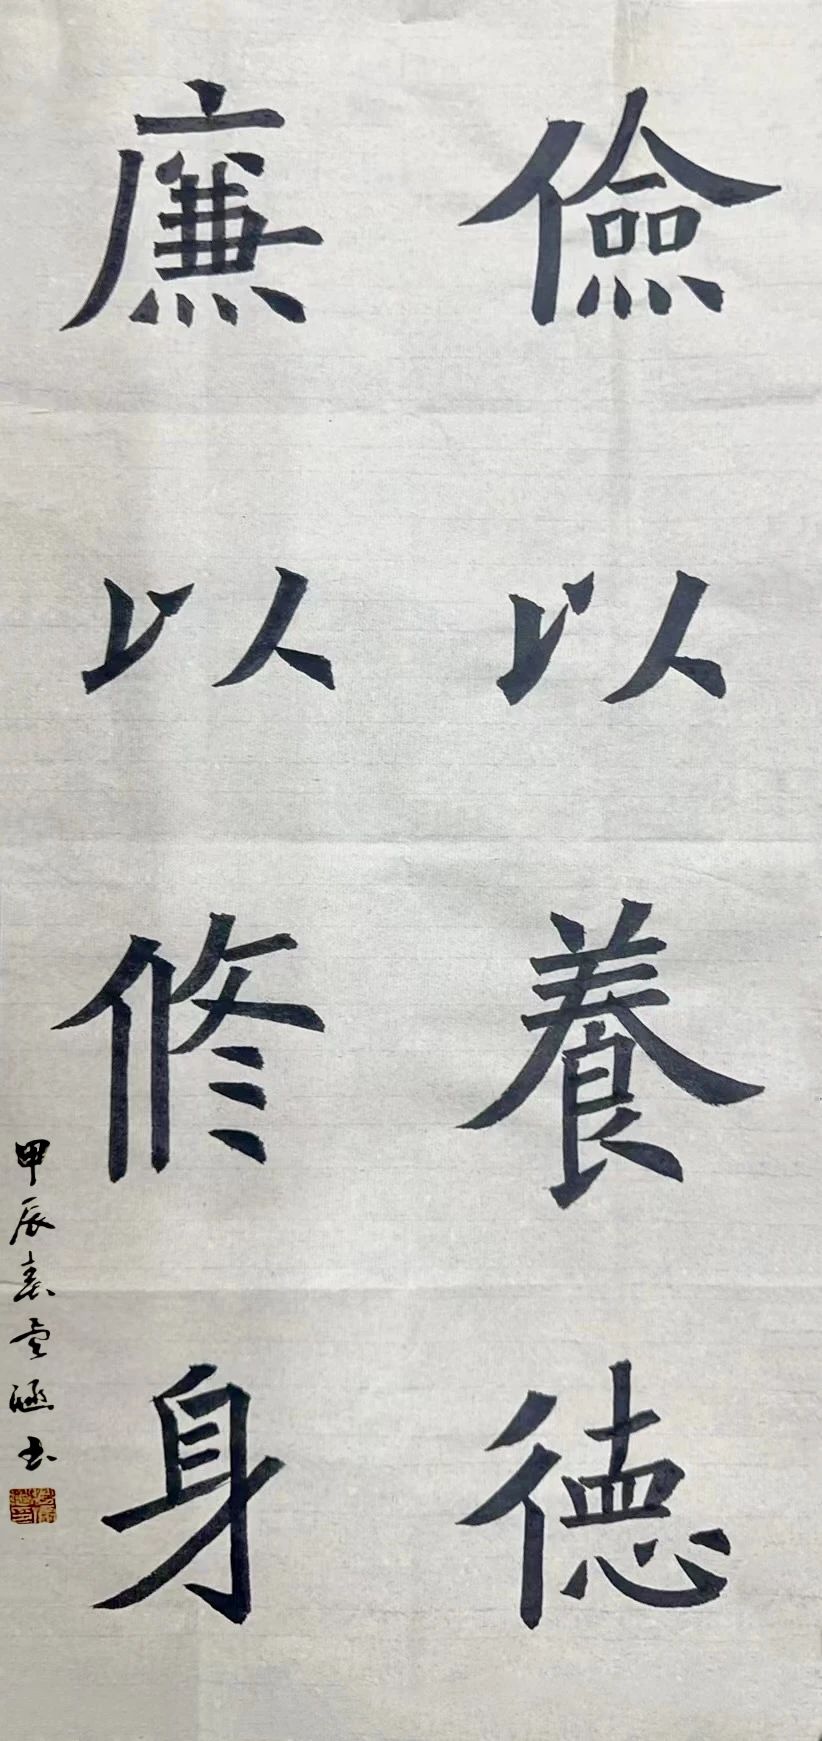 儉以養德
廉以修身
甲辰春雲涵书